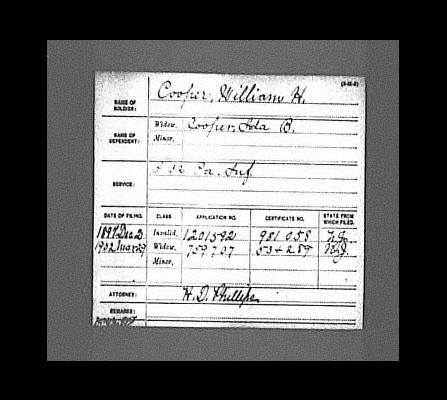 (3-05-6)
NAME OF SOLDIER: Cooper, William H.
NAME OF DEPENDENT: Widow, Cooper, Ida B.
Minor,
SERVICE: Pa. Inf.
DATE OF FILING. CLASS. APPLICATION NO. CERTIFICATE NO. STATE FROM WHICH FILED.
1897 Dec 2 Invalid, 1201592 981058 N.J.
Mar 29 Widow, 759707 534289 N.J.
Minor,
ATTORNEY: H. D. Phillips
REMARKS: